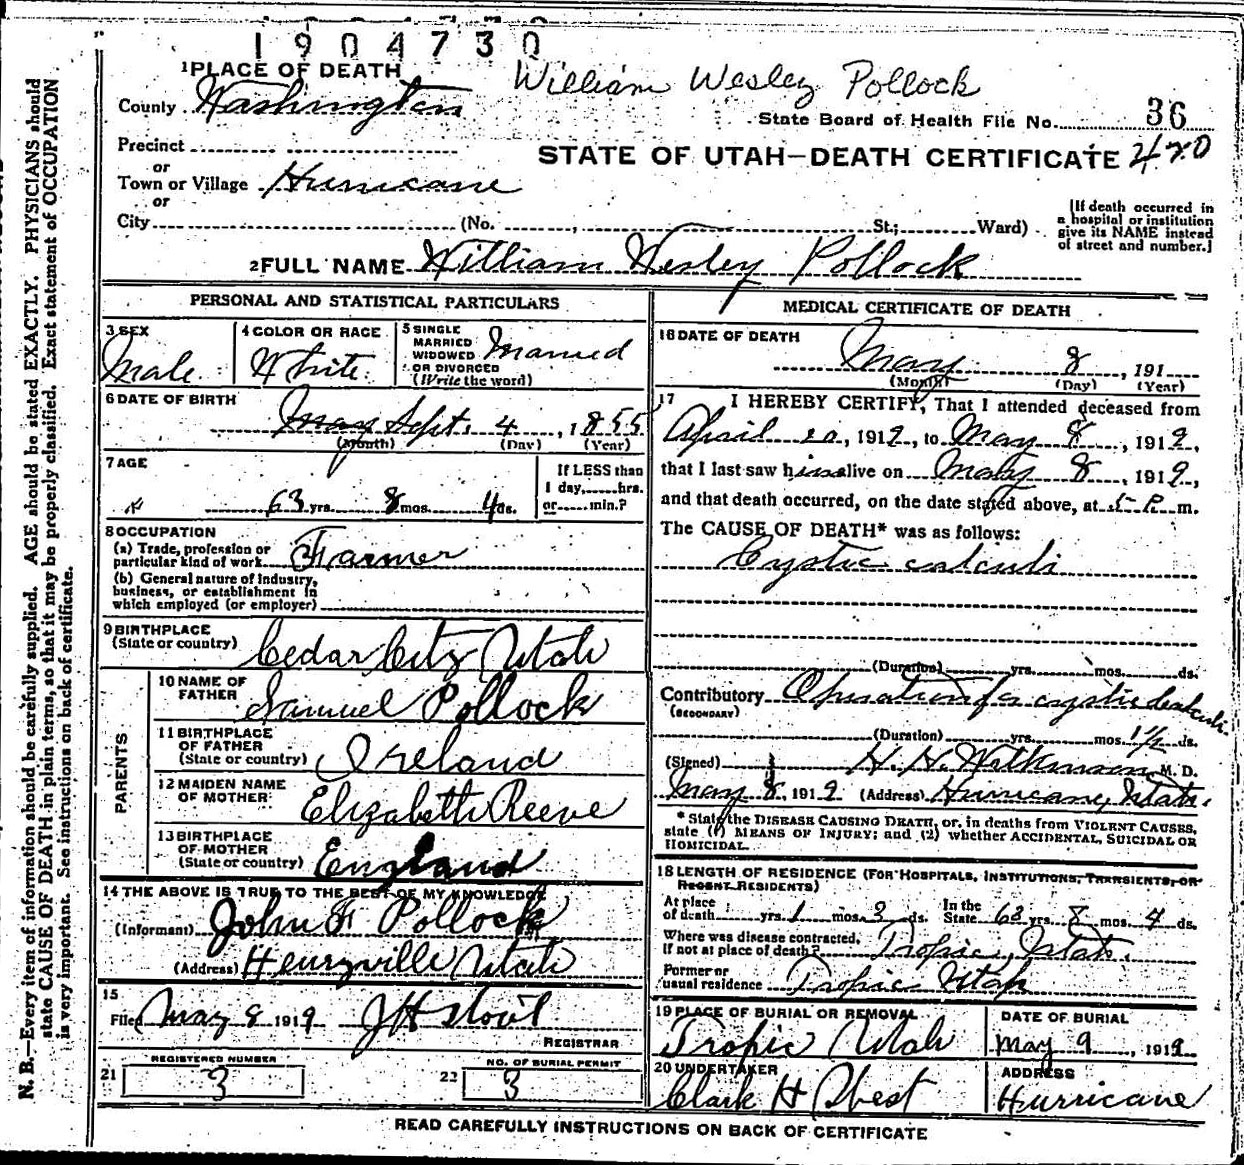 1904730
1 PLACE OF DEATH William Wesley Pollock
County Washington
State Board of Health File No. 36
Precinct
STATE OF UTAH—DEATH CERTIFICATE 420
or
Town or Village Hurricane
or
City (No. , St.; Ward)
[If death occurred in
a hospital or institution
give its NAME instead
of street and number.]
2 FULL NAME William Wesley Pollock
PERSONAL AND STATISTICAL PARTICULARS
3 SEX
Male
4 COLOR OR RACE
White
5 SINGLE
MARRIED
WIDOWED
OR DIVORCED
(Write the word)
Married
6 DATE OF BIRTH
May Sept. 4, 1855
(Month) (Day) (Year)
7 AGE
63 yrs. 8 mos. 4 ds.
If LESS than
1 day, hrs.
or min.?
8 OCCUPATION
(a) Trade, profession or
particular kind of work Farmer
(b) General nature of industry,
business, or establishment in
which employed (or employer)
9 BIRTHPLACE
(State or country) Cedar City Utah
PARENTS
10 NAME OF
FATHER Samuel Pollock
11 BIRTHPLACE
OF FATHER
(State or country) Ireland
12 MAIDEN NAME
OF MOTHER Elizabeth Reeve
13 BIRTHPLACE
OF MOTHER
(State or country) England
14 THE ABOVE IS TRUE TO THE BEST OF MY KNOWLEDGE
(Informant) John F Pollock
(Address) Utah
15
Filed May 8 1919 J H
REGISTRAR
REGISTERED NUMBER
21 3
NO. OF BURIAL PERMIT
22 3
MEDICAL CERTIFICATE OF DEATH
16 DATE OF DEATH
May 8, 191
(Month) (Day) (Year)
17 I HEREBY CERTIFY, That I attended deceased from
April 20, 1919, to May 8, 1919,
that I last saw him alive on May 8, 1919,
and that death occurred, on the date stated above, at 5 P. m.
The CAUSE OF DEATH* was as follows:
Cystic calculi
(Duration) yrs. mos. ds.
Contributory Operation for cystic calculi
(SECONDARY)
(Duration) yrs. mos. 1½ ds.
(Signed) H. H. Wilkinson M. D.
May 8, 1919 (Address) Hurricane, Utah.
* State the DISEASE CAUSING DEATH, or, in deaths from VIOLENT CAUSES,
state (1) MEANS OF INJURY; and (2) whether ACCIDENTAL, SUICIDAL OR
HOMICIDAL.
18 LENGTH OF RESIDENCE (FOR HOSPITALS, INSTITUTIONS, TRANSIENTS, OR
RECENT RESIDENTS)
At place
of death yrs. 1 mos. 3 ds. In the
State 63 yrs. 8 mos. 4 ds.
Where was disease contracted,
if not at place of death? Tropic, Utah.
Former or
usual residence Tropic Utah
19 PLACE OF BURIAL OR REMOVAL
Tropic Utah
DATE OF BURIAL
May 9, 1919
20 UNDERTAKER
Clark H
ADDRESS
Hurricane
READ CAREFULLY INSTRUCTIONS ON BACK OF CERTIFICATE
N. B.—Every item of information should be carefully supplied. AGE should be stated EXACTLY. PHYSICIANS should
state CAUSE OF DEATH in plain terms, so that it may be properly classified. Exact statement of OCCUPATION
is very important. See instructions on back of certificate.